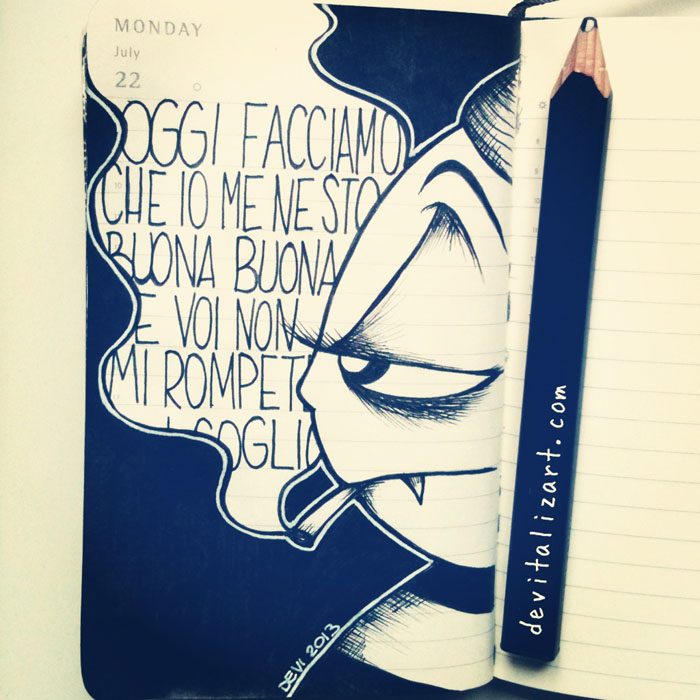 MONDAY
July
22
OGGI FACCIAMO
CHE IO ME NE STO
BUONA BUONA
E VOI NON
MI ROMPET
COGLIO
DEVI 2013
devitalizart.com